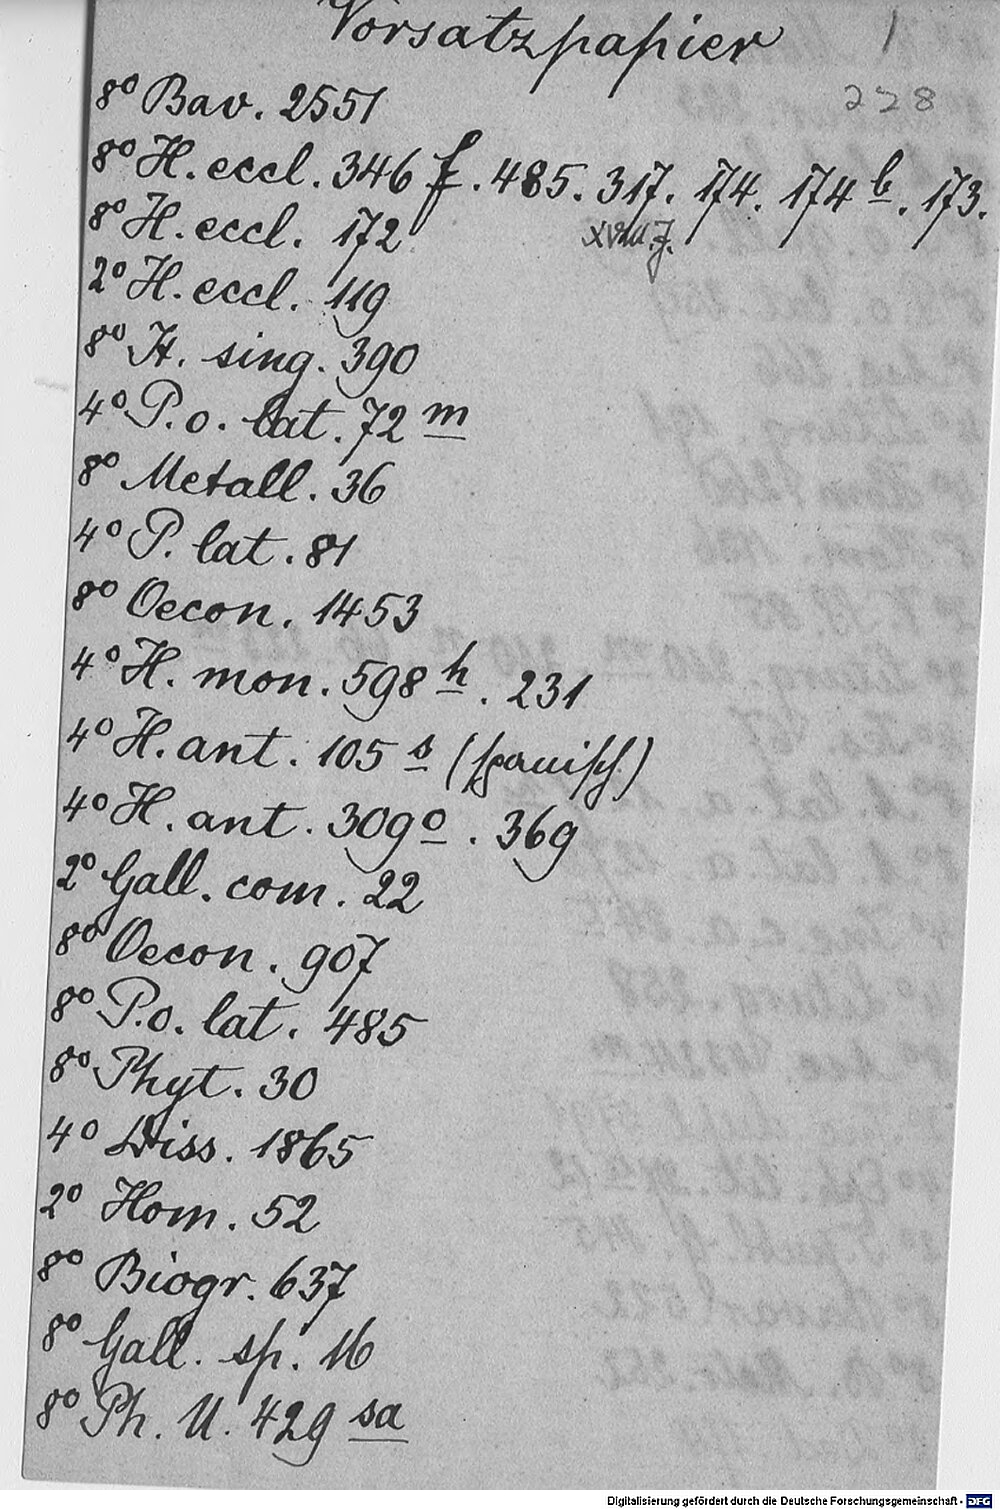 Vorsatzpapier 1
228
8° Bav. 2551
8° H. eccl. 346 f. 485. 317. 174. 174 b. 173.
XVIII. J.
8° H. eccl. 172
2° H. eccl. 119
8° H. sing. 390
4° P. o. lat. 72 m
8° Metall. 36
4° P. lat. 81
8° Oecon. 1453
4° H. mon. 598 h. 231
4° H. ant. 105 s (spanisch)
4° H. ant. 309 o. 369
2° Gall. com. 22
8° Oecon. 907
8° P. o. lat. 485
8° Phyt. 30
4° Diss. 1865
2° Hom. 52
8° Biogr. 637
8° Gall. sp. 16
8° Ph. U. 429 sa
Digitalisierung gefördert durch die Deutsche Forschungsgemeinschaft - DFG